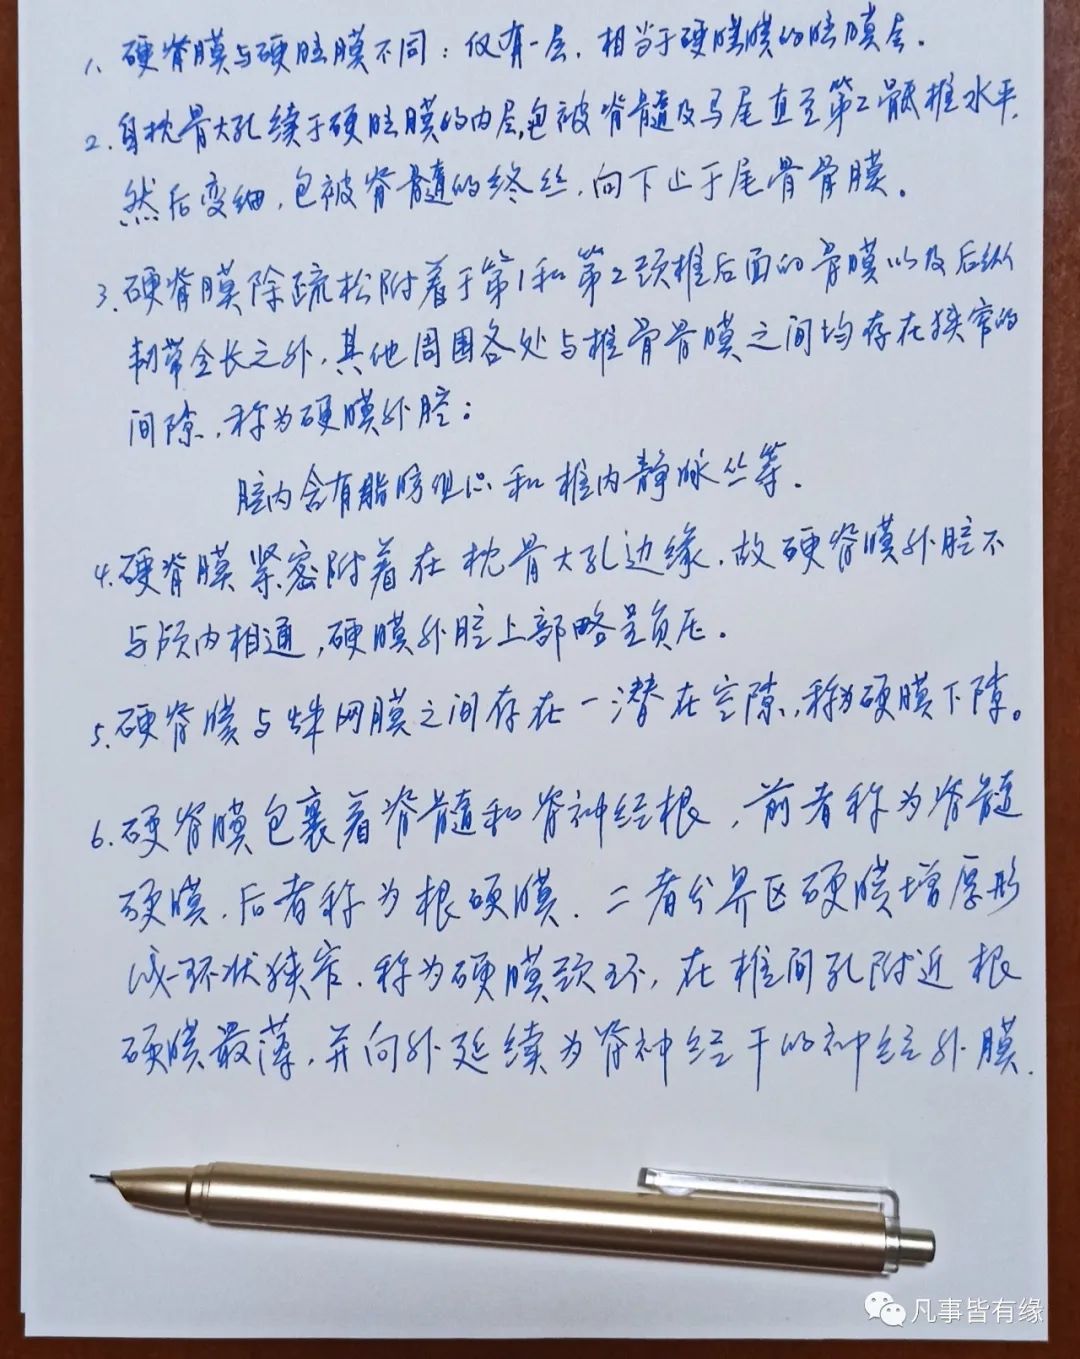 1. 硬脊膜与硬脑膜不同：仅有一层，相当于硬脑膜的脑膜层。
2. 自枕骨大孔续于硬脑膜的内层,包被脊髓及马尾直至第2骶椎水平,
然后变细，包被脊髓的终丝，向下止于尾骨骨膜。
3. 硬脊膜除疏松附着于第1和第2颈椎后面的骨膜以及后纵
韧带全长之外，其他周围各处与椎骨骨膜之间均存在狭窄的
间隙，称为硬膜外腔；
腔内含有脂肪组织和椎内静脉丛等.
4. 硬脊膜紧密附着在枕骨大孔边缘，故硬脊膜外腔不
与颅内相通，硬膜外腔上部略呈负压.
5. 硬脊膜与蛛网膜之间存在一潜在空隙，称为硬膜下隙。
6. 硬脊膜包裹着脊髓和脊神经根，前者称为脊髓
硬膜，后者称为根硬膜. 二者分界区硬膜增厚形
成一环状狭窄，称为硬膜颈环，在椎间孔附近根
硬膜最薄，并向外延续为脊神经干的神经外膜.
凡事皆有缘